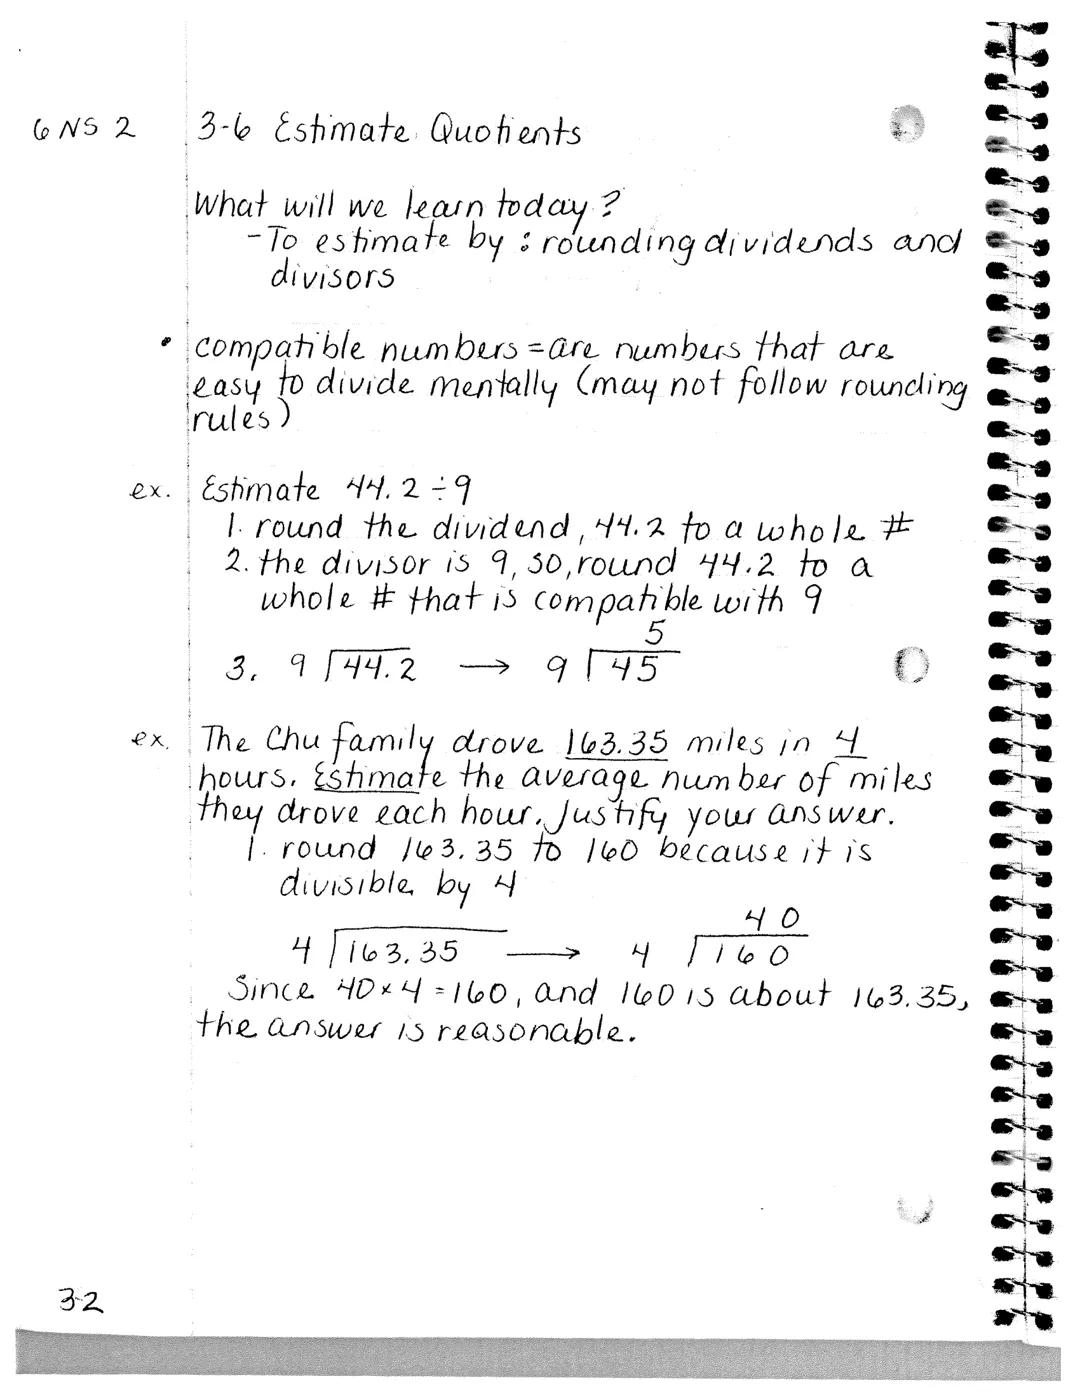 6 NS 2 3-6 Estimate Quotients
What will we learn today?
- To estimate by : rounding dividends and
divisors
• compatible numbers = are numbers that are
easy to divide mentally (may not follow rounding
rules)
ex. Estimate 44.2 ÷ 9
1. round the dividend, 44.2 to a whole #
2. the divisor is 9, so, round 44.2 to a
whole # that is compatible with 9
5
3. 9 44.2 → 9 45
ex. The Chu family drove 163.35 miles in 4
hours. Estimate the average number of miles
they drove each hour. Justify your answer.
1. round 163.35 to 160 because it is
divisible by 4
40
4 163.35 → 4 160
Since 40 × 4 = 160, and 160 is about 163.35,
the answer is reasonable.
32